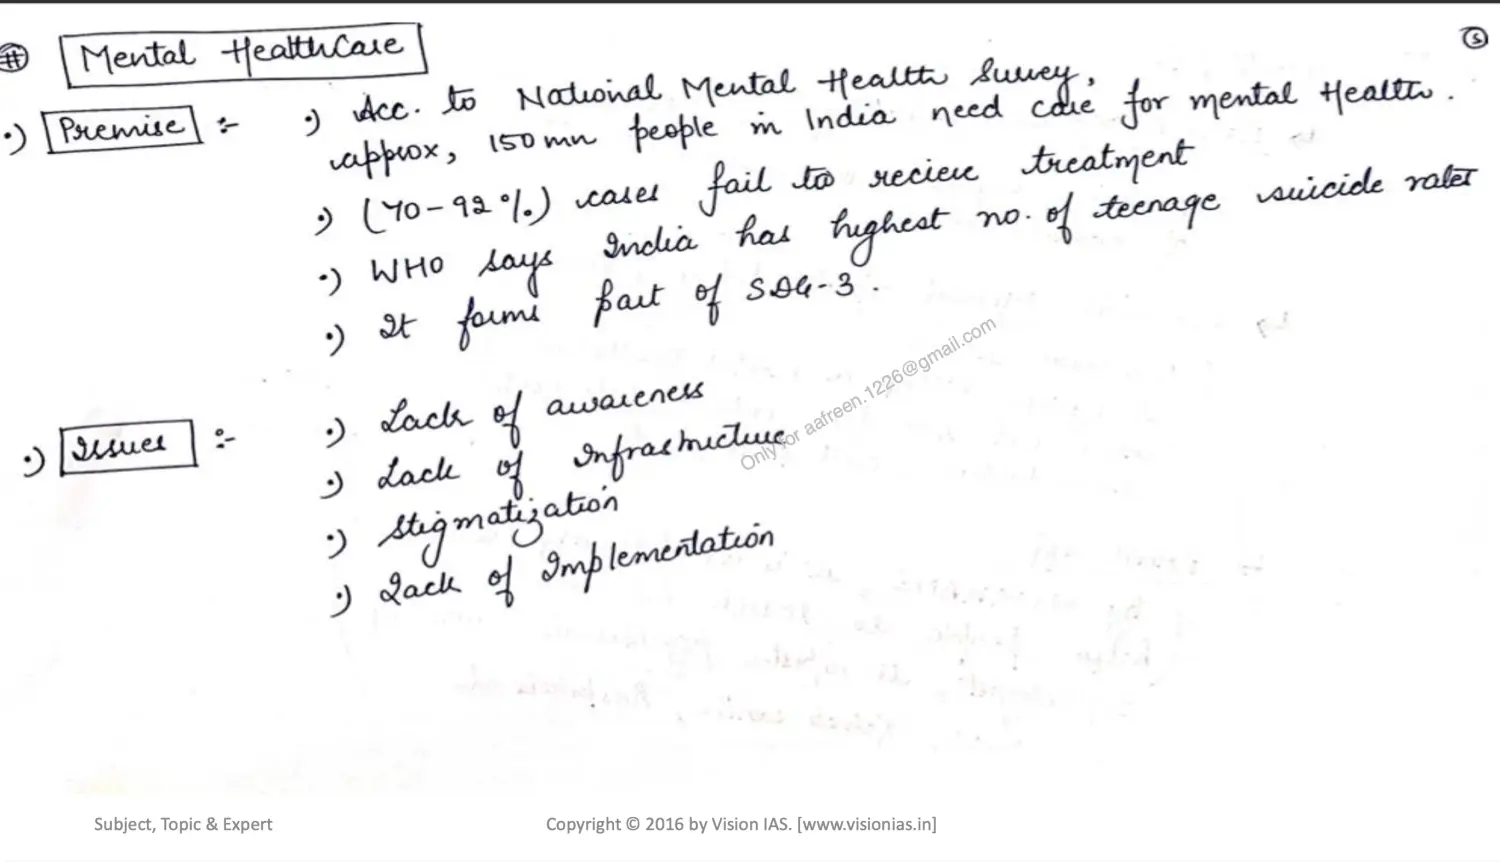 # Mental HealthCare
5
·) Premise :- ·) Acc. to National Mental Health Survey,
approx, 150 mn people in India need care for mental Health.
·) (70-92%) cases fail to recieve treatment
·) WHO says India has highest no. of teenage suicide rates
·) It forms part of SDG-3.
·) Issues :- ·) Lack of awareness
·) Lack of Infrastructure
·) Stigmatization
·) Lack of Implementation
Only for aafreen.1226@gmail.com
Subject, Topic & Expert
Copyright © 2016 by Vision IAS. [www.visionias.in]